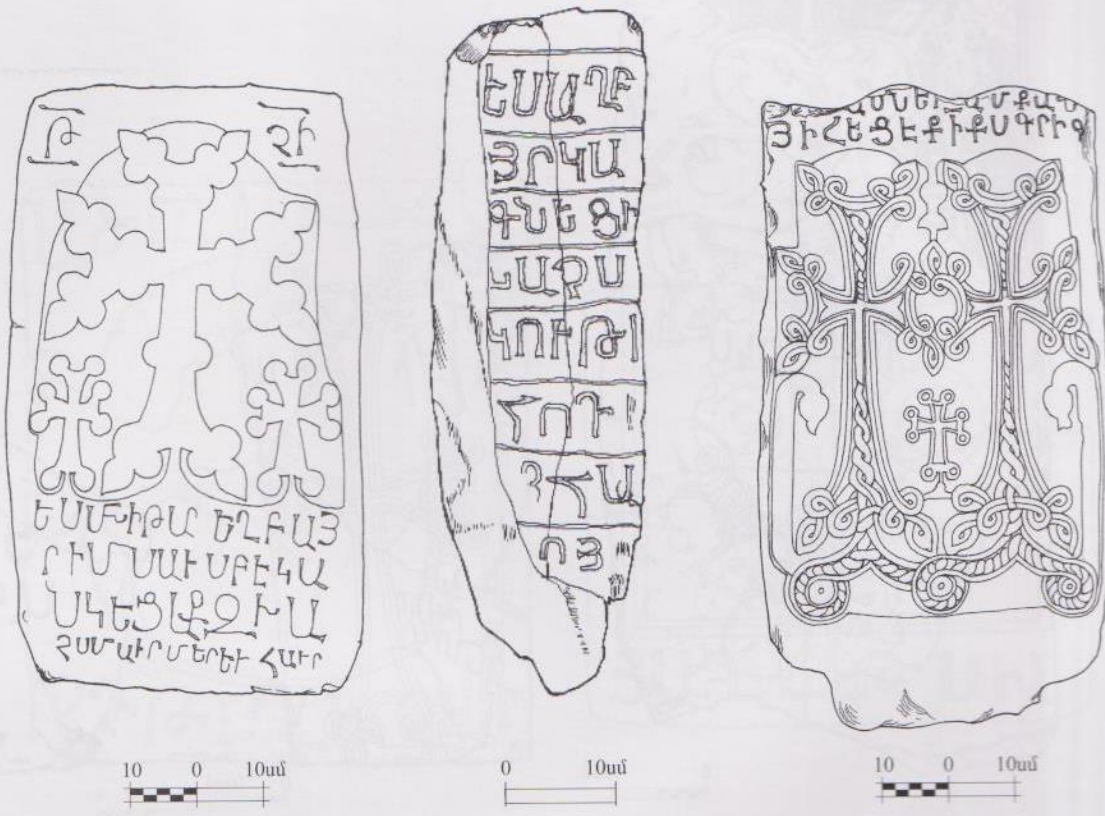 Թ ՉԻ
ԵՍՄԽԻԹԱ ԵՂԲԱՅ
ՐԻՄ ՍԱՒՍԲԷԿԱ
ՍԿԵՑԱՔԶԽԱ
ՉՍՄԱՒՐՄԵՐԵՒ ՀԱՒՐ
10 0 10սմ
ԵՍԱՂԲ
ՅՐԿԱ
ԳՆԵՑԻ
ՆԱԶՍ
ԿՈՒԹԻ
ՀՈԴԻ
ՉՀԱ
ՈՅ
0 10սմ
ՅԻՀԵՑԷՔԻՔՍԳՐԻԳ
10 0 10սմ